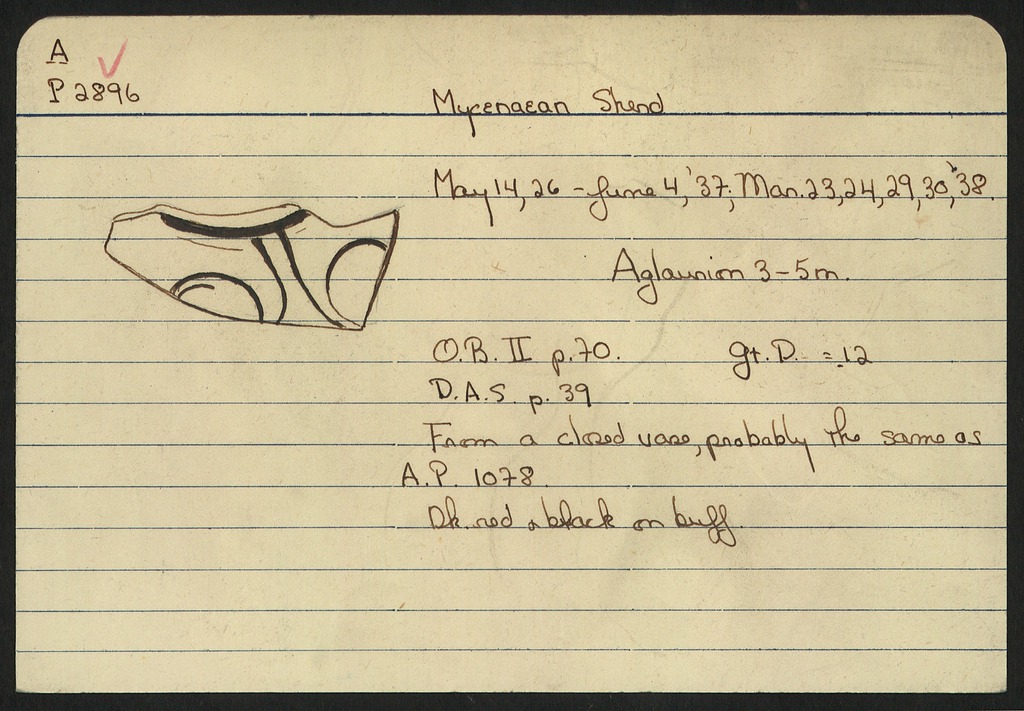 A
P 2896
Mycenaean Sherd
May 14, 26 - June 4, '37; Mar. 23, 24, 29, 30, '38.
Aglaurion 3-5m.
O.B. II p. 70. gt. D. = .12
D.A.S. p. 39
From a closed vase, probably the same as
A.P. 1078.
Dk. red & black on buff.